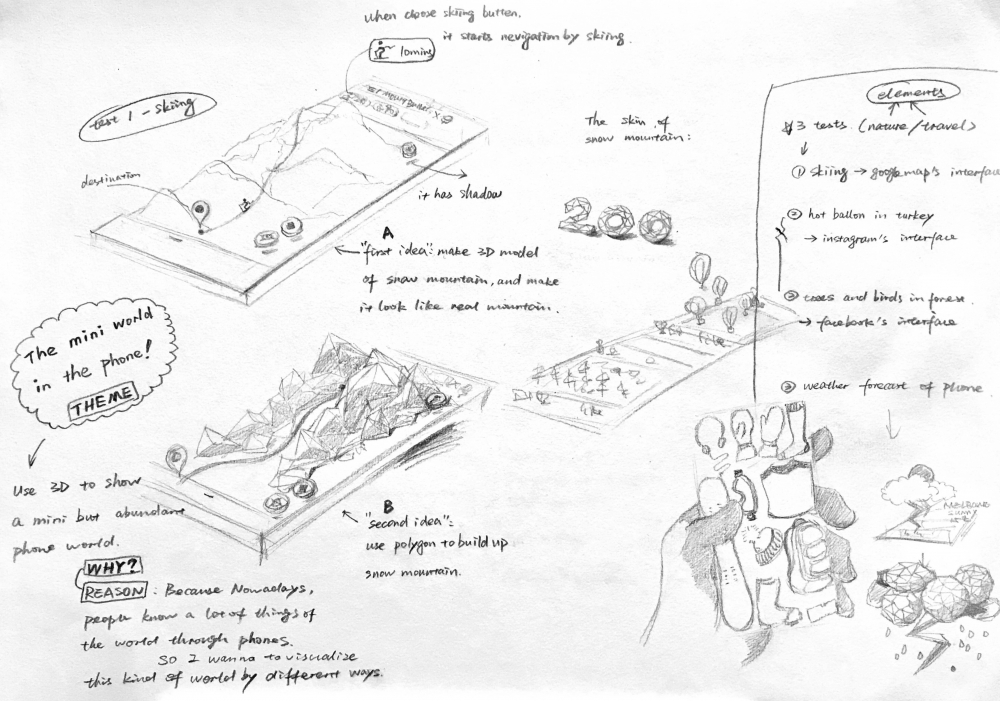 when choose skiing butten.
it starts nevigation by skiing.
10mins
test 1 - skiing
destination
it has shadow
A
"first idea": make 3D model
of snow mountain, and make
it look like real mountain.
The skin of
snow mountain:
200
elements
3 tests (nature/travel)
① skiing → google map's interface
② hot ballon in turkey
→ instagram's interface
③ trees and birds in forest.
→ facebook's interface
③ weather forecast of phone
like
like
The mini world
in the phone!
THEME
Use 3D to show
a mini but abundant
phone world.
WHY?
REASON: Because Nowadays,
people know a lot of things of
the world through phones.
so I wanna to visualize
this kind of world by different ways.
B
"second idea":
use polygon to build up
snow mountain.